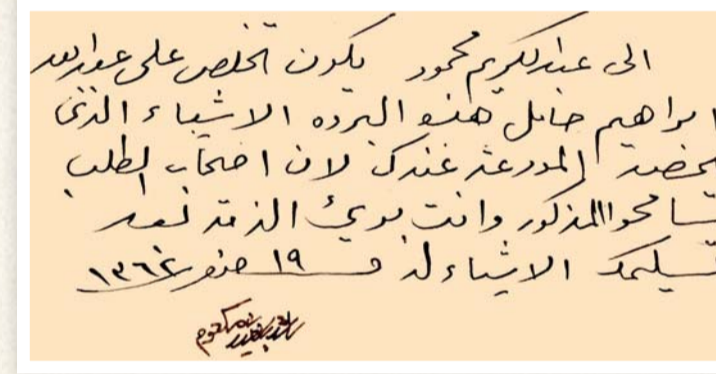 الى عبدالكريم محمود يكون تخلص على عبدالله
ابراهيم حامل هذه البروه الاشياء الذي
تخصه المودعة عندك لان اصحاب الطلب
تسامحوا المذكور وانت بريئ الذمة بعد
تسليمك الاشياء له في ١٩ صفر ١٣٦٢